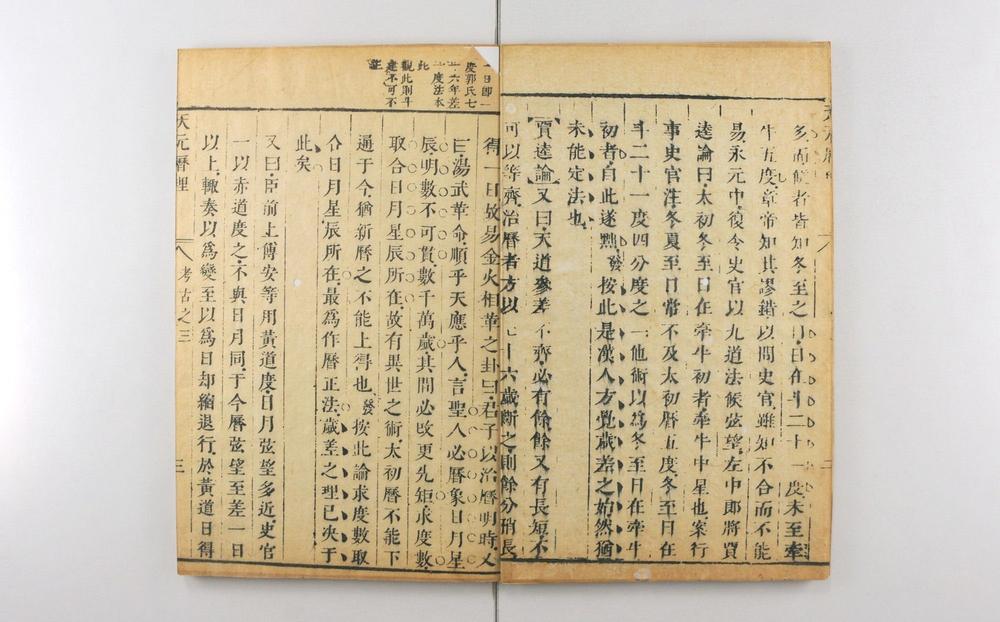 多而候者皆知冬至之日日在斗二十一度未至牽
牛五度章帝知其謬錯以問史官雖知不合而不能
易永元中復令史官以九道法候弦望左中郎將賈
逵論曰太初冬至日在牽牛初者牽牛中星也案行
事史官注冬夏至日常不及太初曆五度冬至日在
斗二十一度四分度之一他術以為冬至日在牽牛
初者自此遂黜發按此是漢人方覺歲差之始然猶
未能定法也
賈逵論又曰天道參差不齊必有餘餘又有長短不
可以等齊治曆者方以七十六歲斷之則餘分稍長
一日即一
度郭氏七
十六年差
一度法本
此
觀此則斗
建不可不
得一日故易金火相革之卦曰君子以治曆明時又
曰湯武革命順乎天應乎人言聖人必曆象日月星
辰明數不可貫數千萬歲其間必改更先矩求度數
取合日月星辰所在故有異世之術太初曆不能下
通于今猶新曆之不能上得也發按此論求度數取
合日月星辰所在最為作曆正法歲差之理已決于
此矣
又曰臣前上傅安等用黃道度日月弦望多近史官
一以赤道度之不與日月同于今曆弦望至差一日
以上輒奏以為變至以為日却縮退行於黃道日得
天元曆理
考古之三
三